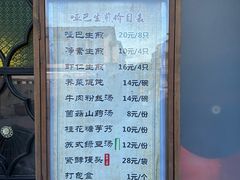 哑巴生煎价目表
哑巴生煎 20元/8只
净素生煎 10元/4只
虾仁生煎 16元/4只
荠菜馄饨 14元/碗
牛肉粉丝汤 14元/碗
菌菇山药汤 8元/份
桂花糖芋艿 10元/份
苏式绿豆汤 12元/份
紧酵馒头 28元/袋
打包盒 1元/个